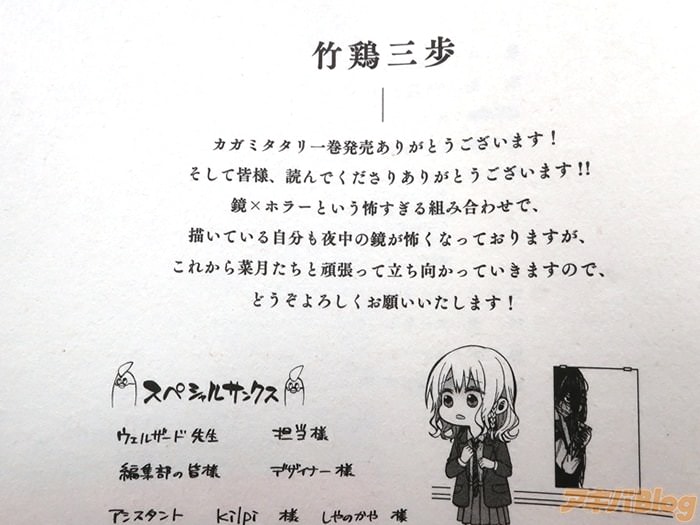 竹鶏三歩
カガミタタリ一巻発売ありがとうございます!
そして皆様、読んでくださりありがとうございます!!
鏡×ホラーという怖すぎる組み合わせで、
描いている自分も夜中の鏡が怖くなっておりますが、
これから菜月たちと頑張って立ち向かっていきますので、
どうぞよろしくお願いいたします!
スペシャルサンクス
ウェルザード先生 担当様
編集部の皆様 デザイナー様
アシスタント kilpi 様 しやのかや 様
アキバBlog